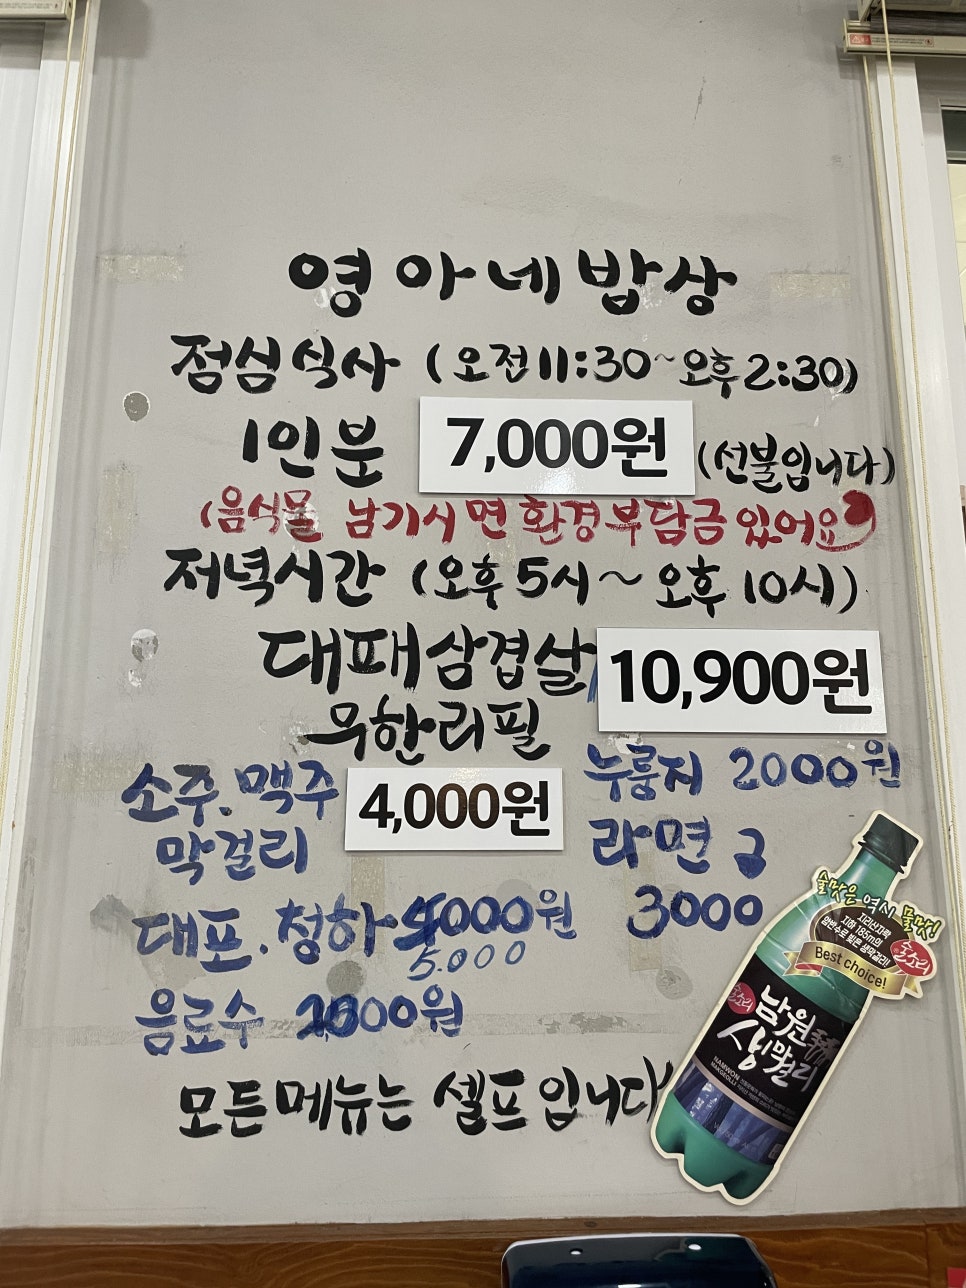 영아네밥상
점심식사 (오전11:30~오후2:30)
1인분 7,000원 (선불입니다)
(음식물 남기시면 환경부담금 있어요)
저녁시간 (오후5시~오후10시)
대패삼겹살 10,900원
무한리필
소주.맥주 4,000원
막걸리
누룽지 2000원
라면
3000
대포.청하 000원
5.000
음료수 000원
모든메뉴는 셀프입니다
술맛은 역시 물맛!
지리산자락
지하 185m의
암반수로 빚은 생막걸리!
Best choice!
남원
생막걸리
NAMWON
MAKGEOLLI